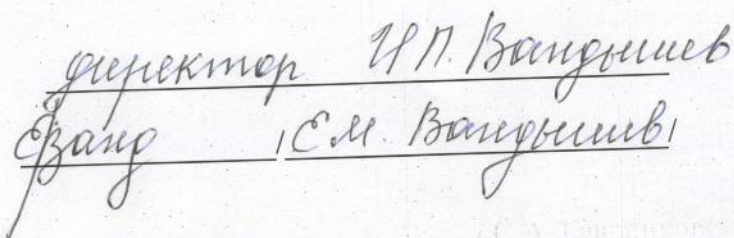 директор ИП. Вандышев
ЕВанд /Е М. Вандышев/